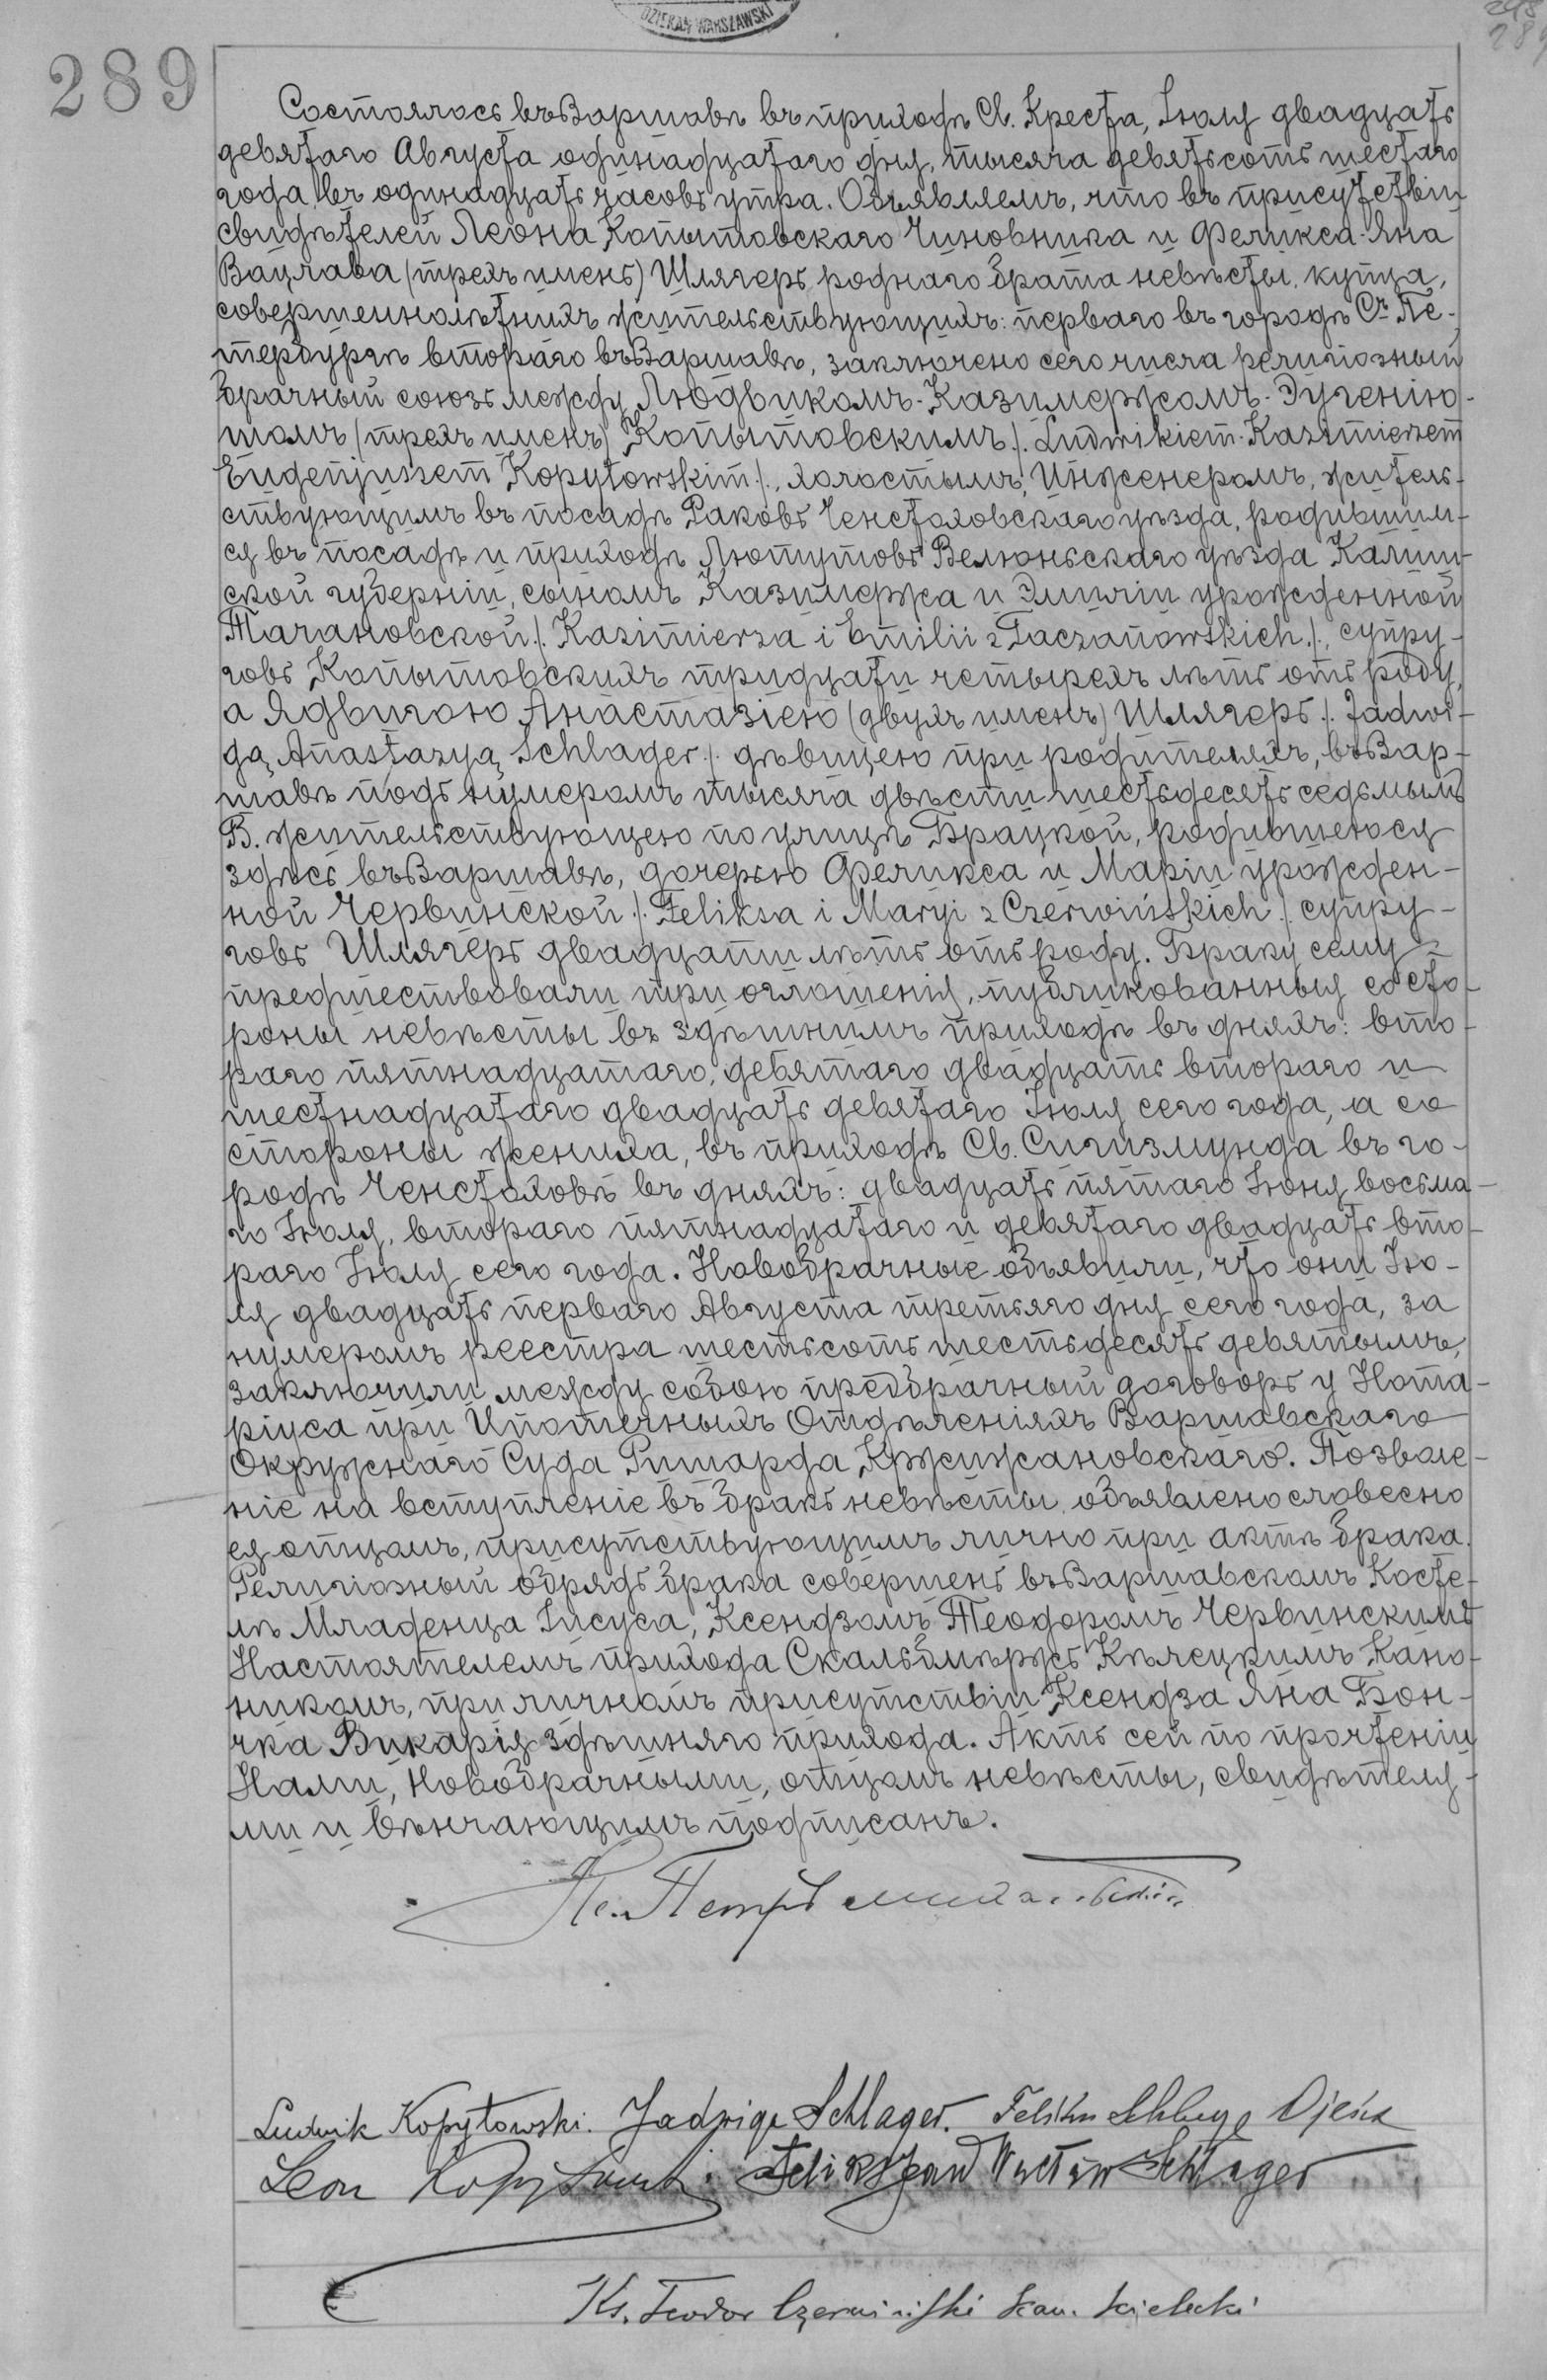 DZIEKAN WARSZAWSKI
289
Состоялось въ Варшавѣ въ приходѣ Св. Креста, Іюля двадцать
девятаго Августа одинадцатаго дня, тысяча девятьсотъ шестаго
года въ одинадцать часовъ утра. Объявляемъ, что въ присутствіи
свидѣтелей Леона Копытовскаго Чиновника и Феликса-Яна
Вацлава (трехъ именъ) Шлягеръ роднаго брата невѣсты, купца,
совершеннолѣтнихъ жительствующихъ: перваго въ городѣ Ст. Пе-
тербургѣ втораго въ Варшавѣ, заключено сего числа религіозный
брачный союзъ между Людвикомъ-Казимержомъ-Эугенію-
шомъ (трехъ именъ) Копытовскимъ /. Ludwikiem-Kazimierzem
Eugenjuszem Kopytowskim /., холостымъ, Инженеромъ, житель-
ствующимъ въ посадѣ Раковъ Ченстоховскаго уѣзда, родившим-
ся въ посадѣ и приходѣ Лютутовъ Велюньскаго уѣзда Калиш-
ской губерніи, сыномъ Казимержа и Эмиліи урожденной
Тачановской /. Kazimierza i Emilii z Taczanowskich /., супру-
говъ Копытовскихъ тридцати четырехъ лѣтъ отъ роду,
а Ядвигою Анастазіею (двухъ именъ) Шлягеръ /. Jadwi-
gą Anastazyą Schlager /. дѣвицею при родителяхъ, въ Вар-
шавѣ подъ нумеромъ тысяча двѣсти шестьдесятъ седьмымъ
В. жительствующею по улицѣ Брацкой, родившеюся
здѣсь въ Варшавѣ, дочерью Феликса и Маріи урожден-
ной Червинской /. Feliksa i Maryi z Czerwińskich /. супру-
говъ Шлягеръ двадцати лѣтъ отъ роду. Браку сему
предшествовали три оглошенія, публикованныя со сто-
роны невѣсты въ здѣшнимъ приходѣ въ дняхъ: вто-
раго пятнадцатаго, девятаго двадцать втораго и
шестнадцатаго двадцать девятаго Іюля сего года, а со
стороны жениха, въ приходѣ Св. Сигизмунда въ го-
родѣ Ченстоховѣ въ дняхъ: двадцать пятаго Іюня восьма-
го Іюля, втораго пятнадцатаго и девятаго двадцать вто-
раго Іюля сего года. Новобрачные объявили, что они Ію-
ля двадцать перваго Августа третьяго дня сего года, за
нумеромъ реестра шестьсотъ шестьдесятъ девятымъ,
заключили между собою предбрачный договоръ у Нота-
ріуса при Ипотечныхъ Отдѣленіяхъ Варшавскаго
Окружнаго Суда Ришарда Кржижановскаго. Позволе-
ніе на вступленіе въ бракъ невѣсты объявлено словесно
ея отцомъ, присутствующимъ лично при актѣ брака.
Религіозный обрядъ брака совершенъ въ Варшавскомъ Косте-
лѣ Младенца Іисуса, Ксендзомъ Теодоромъ Червинскимъ
Настоятелемъ прихода Скальбмѣржъ Кѣлецкимъ Кано-
никомъ, при личномъ присутствіи Ксендза Яна Бон-
чка Викарія здѣшняго прихода. Актъ сей по прочтеніи
Нами, Новобрачными, отцомъ невѣсты, свидѣтеля-
ми и вѣнчающимъ подписанъ.
Петръ
Ludwik Kopytowski. Jadwiga Schlager. Feliks Schlager Ojciec
Leon Kopytowski. Feliks Jan Wacław Schlager
Ks. Teodor Czerwiński kan. kielecki